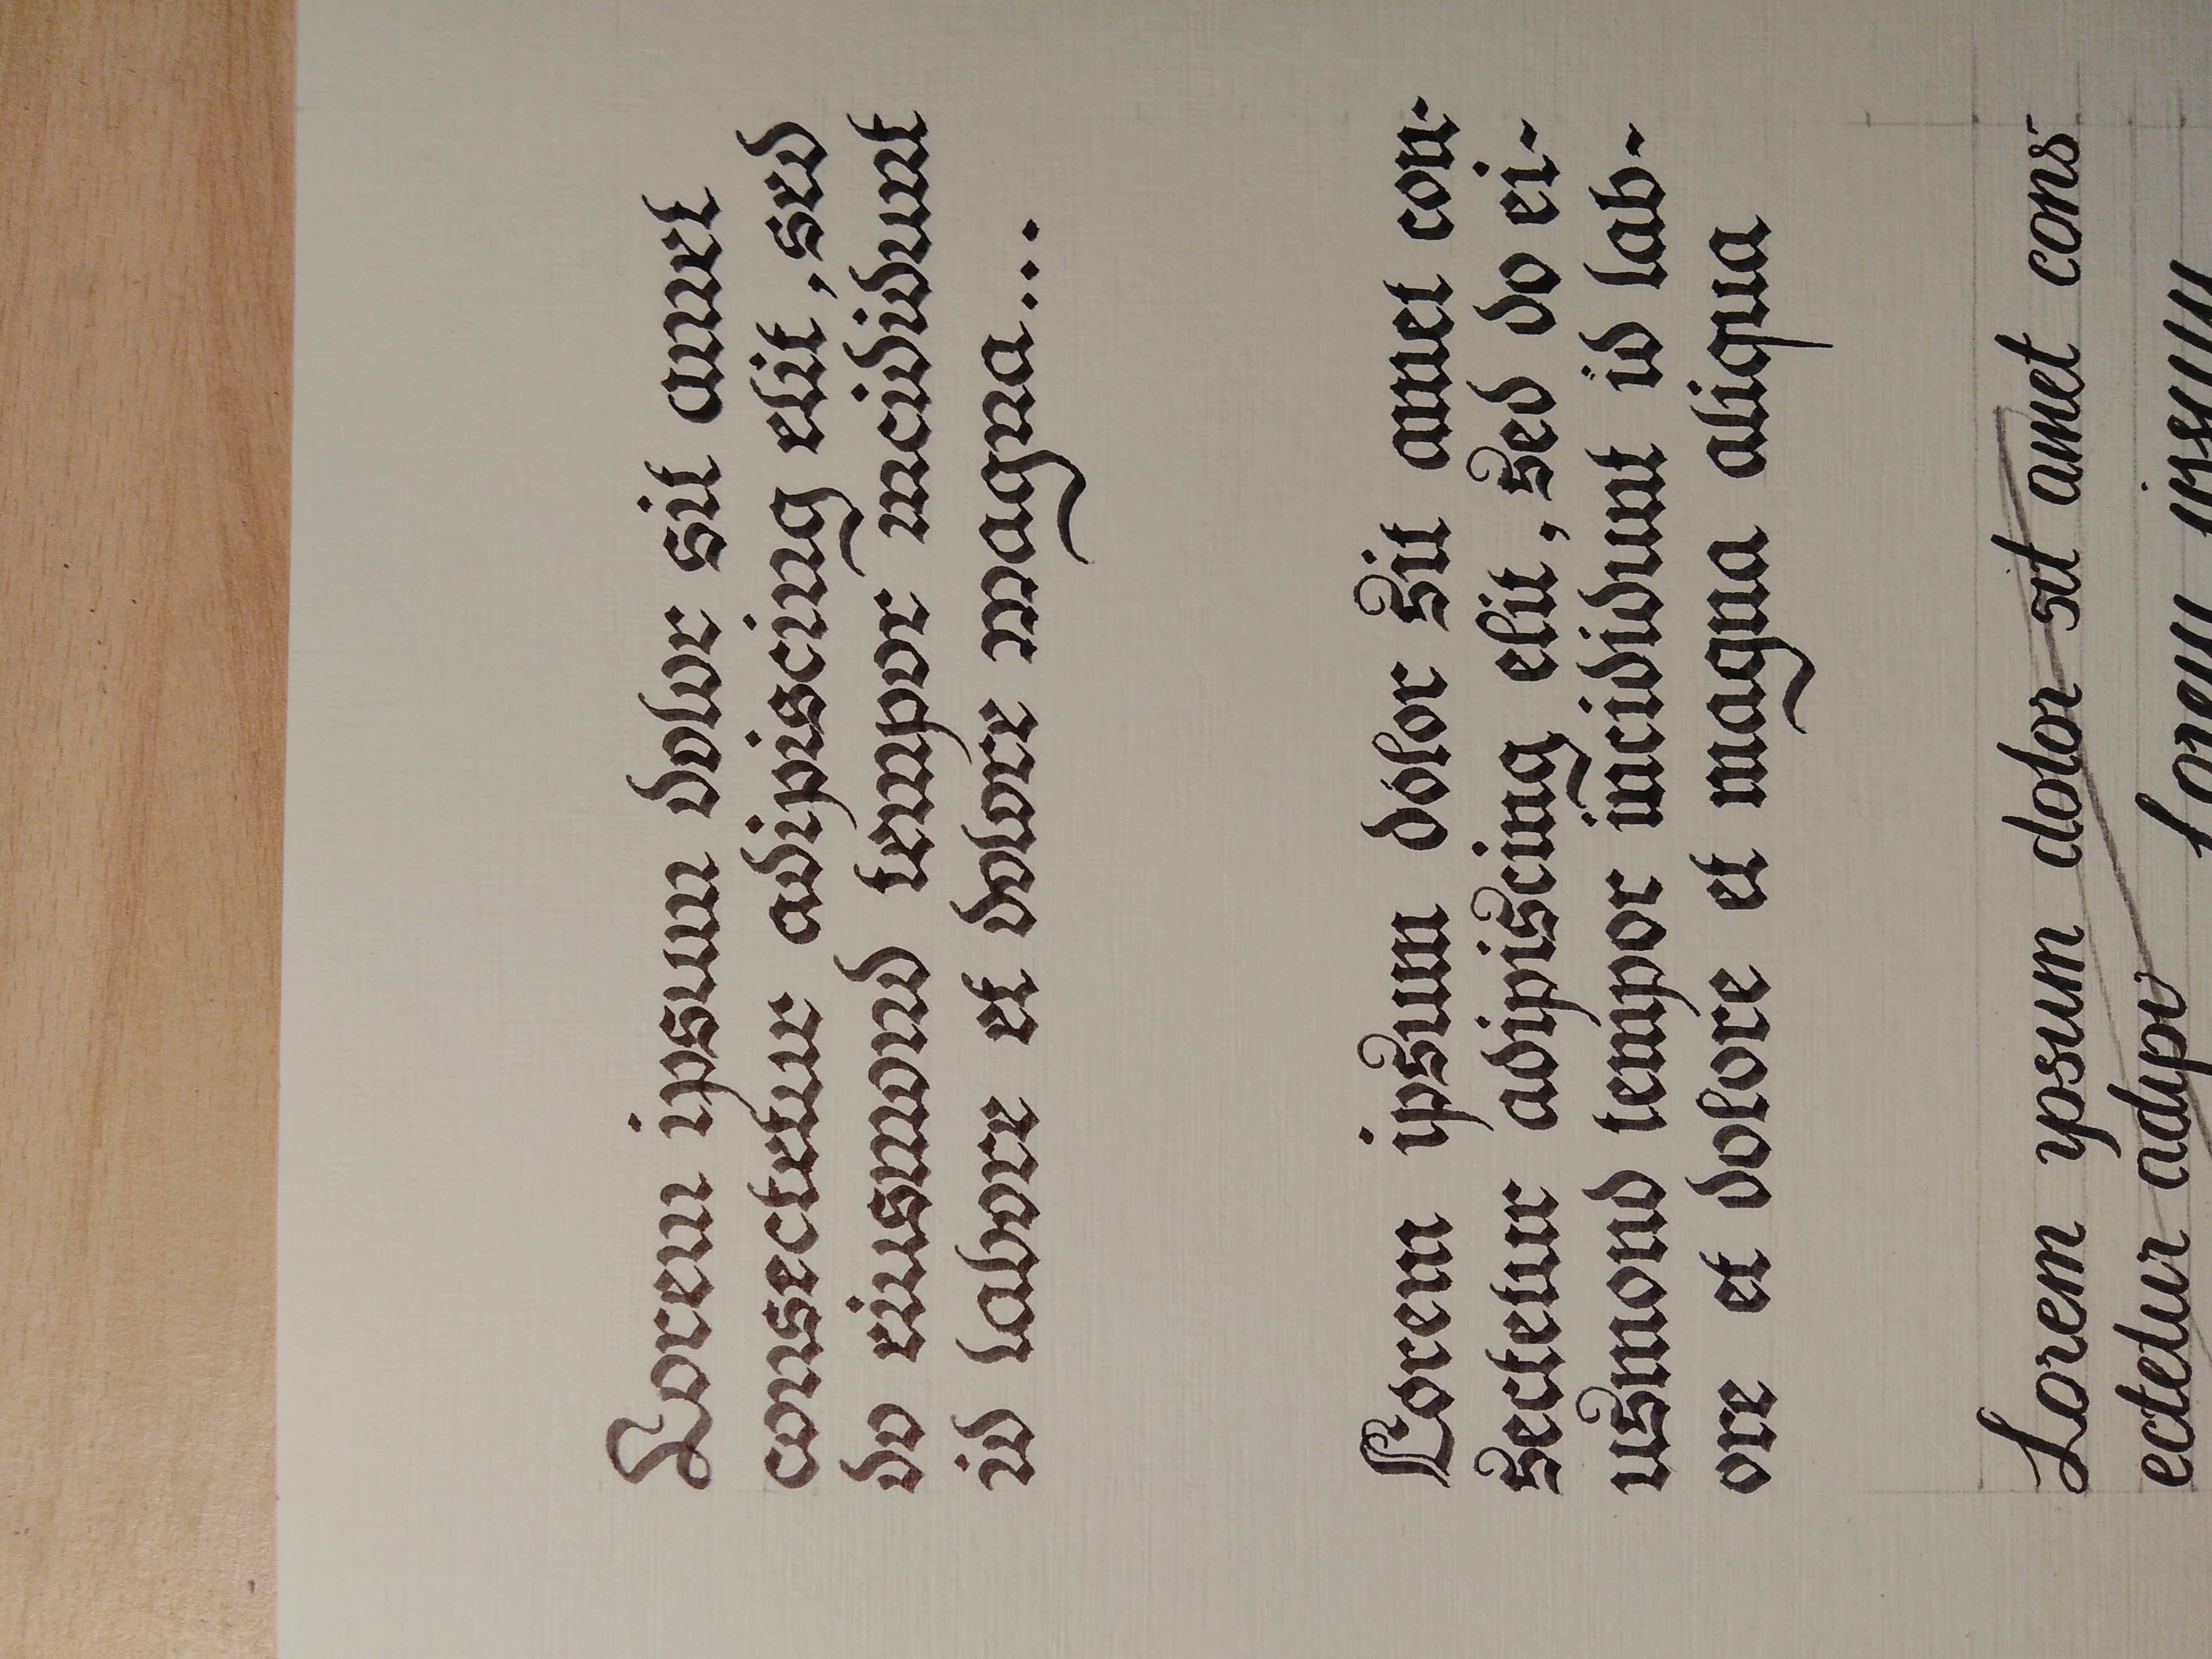 Lorem ipsum dolor sit amet
consectetur adipiscing elit, sed
do eiusmond tempor incididunt
id labore et dolore magna...
Lorem ipsum dolor sit amet con-
sectetur adipiscing elit, sed do ei-
usmond tempor incididunt id lab-
ore et dolore et magna aliqua
Lorem ipsum dolor sit amet cons-
ectetur adipi
Lorem ipsum